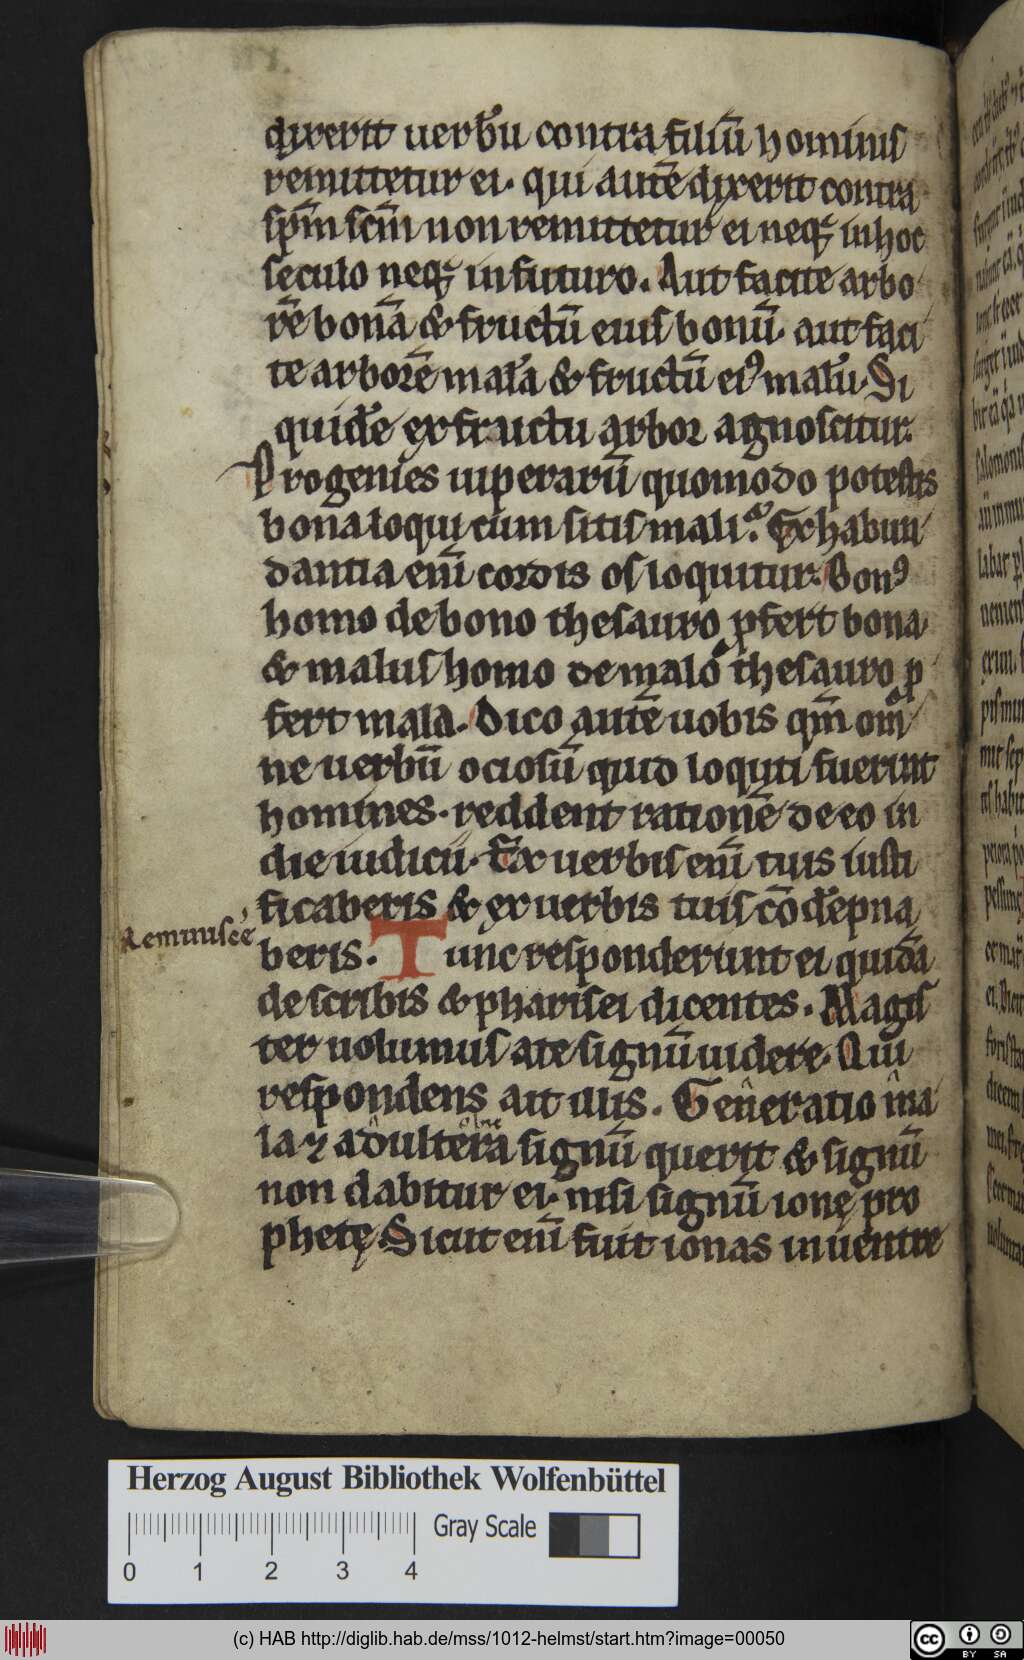 dixerit uerbū contra filiū hominis
remittetur ei. qui autē dixerit contra
sp̄m sc̄m non remittetur ei neq; in hoc
seculo neq; in futuro. Aut facite arbo
rē bonā & fructū eius bonū. aut faci
te arborē malā & fructū ei⁹ malū. Si
quidē ex fructu arbor agnoscitur.
Progenies uiperarū quomodo potestis
bona loqui cum sitis mali. Ex habun
dantia enī cordis os loquitur. Bon⁹
homo de bono thesauro ꝓfert bona
& malus homo de malo thesauro ꝓ
fert mala. Dico autē uobis qm̄ om̄
ne uerbū ociosū quod loquti fuerint
homines. reddent rationē de eo in
die iudicii. Ex uerbis enī tuis iusti
ficaberis & ex uerbis tuis cōdēpna
Reminiscē
beris. Tunc responderunt ei quidā
de scribis & pharisei dicentes. Magis
ter uolumus a te signū uidere. Qui
respondens ait illis. Generatio ma
la ⁊ adultera signū querit & signū
non dabitur ei. nisi signū ione pro
phetę. Sicut enī fuit ionas in uentre
Herzog August Bibliothek Wolfenbüttel
Gray Scale
0 1 2 3 4
(c) HAB http://diglib.hab.de/mss/1012-helmst/start.htm?image=00050
cc BY SA